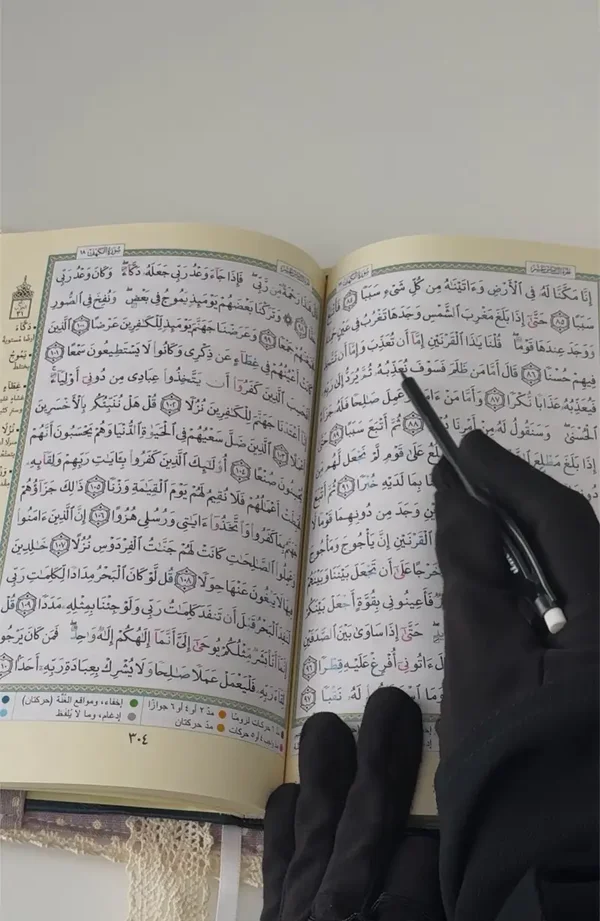 الجزء السادس عشر
سورة الكهف
إِنَّا مَكَّنَّا لَهُۥ فِى ٱلْأَرْضِ وَءَاتَيْنَٰهُ مِن كُلِّ شَىْءٍ سَبَبًا ٨٤ فَأَتْبَعَ
سَبَبًا ٨٥ حَتَّىٰٓ إِذَا بَلَغَ مَغْرِبَ ٱلشَّمْسِ وَجَدَهَا تَغْرُبُ فِى عَيْنٍ
وَوَجَدَ عِندَهَا قَوْمًا قُلْنَا يَٰذَا ٱلْقَرْنَيْنِ إِمَّآ أَن تُعَذِّبَ وَإِمَّآ أَن
فِيهِمْ حُسْنًا ٨٦ قَالَ أَمَّا مَن ظَلَمَ فَسَوْفَ نُعَذِّبُهُۥ ثُمَّ يُرَدُّ إِلَىٰ رَبِّهِۦ
فَيُعَذِّبُهُۥ عَذَابًا نُّكْرًا ٨٧ وَأَمَّا مَنْ ءَامَنَ وَعَمِلَ صَٰلِحًا فَلَهُۥ جَزَآءً
ٱلْحُسْنَىٰ وَسَنَقُولُ لَهُۥ مِنْ أَمْرِنَا يُسْرًا ٨٨ ثُمَّ أَتْبَعَ سَبَبًا ٨٩
إِذَا بَلَغَ مَطْلِعَ تَطْلُعُ عَلَىٰ قَوْمٍ لَّمْ نَجْعَل لَّهُم
دُونِهَا بِمَا لَدَيْهِ خُبْرًا ٩١ ثُمَّ أَتْبَعَ
وَجَدَ مِن دُونِهِمَا قَوْمًا لَّا
ٱلْقَرْنَيْنِ إِنَّ يَأْجُوجَ وَمَأْجُوجَ
خَرْجًا عَلَىٰٓ أَن تَجْعَلَ بَيْنَنَا وَبَيْنَهُمْ
فَأَعِينُونِى بِقُوَّةٍ أَجْعَلْ بَيْنَكُمْ
حَتَّىٰٓ إِذَا سَاوَىٰ بَيْنَ ٱلصَّدَفَيْنِ
قَالَ ءَاتُونِىٓ أُفْرِغْ عَلَيْهِ قِطْرًا ٩٦
وَمَا ٱسْتَطَٰعُوا۟ لَهُۥ نَقْبًا ٩٧
الجزء السادس عشر
سورة الكهف ١٨
قَالَ هَٰذَا رَحْمَةٌ مِّن رَّبِّى فَإِذَا جَآءَ وَعْدُ رَبِّى جَعَلَهُۥ دَكَّآءَ وَكَانَ وَعْدُ رَبِّى
حَقًّا ٩٨ وَتَرَكْنَا بَعْضَهُمْ يَوْمَئِذٍ يَمُوجُ فِى بَعْضٍ وَنُفِخَ فِى ٱلصُّورِ
فَجَمَعْنَٰهُمْ جَمْعًا ٩٩ وَعَرَضْنَا جَهَنَّمَ يَوْمَئِذٍ لِّلْكَٰفِرِينَ عَرْضًا ١٠٠ ٱلَّذِينَ
كَانَتْ أَعْيُنُهُمْ فِى غِطَآءٍ عَن ذِكْرِى وَكَانُوا۟ لَا يَسْتَطِيعُونَ سَمْعًا ١٠١
أَفَحَسِبَ ٱلَّذِينَ كَفَرُوٓا۟ أَن يَتَّخِذُوا۟ عِبَادِى مِن دُونِىٓ أَوْلِيَآءَ
إِنَّآ أَعْتَدْنَا جَهَنَّمَ لِلْكَٰفِرِينَ نُزُلًا ١٠٢ قُلْ هَلْ نُنَبِّئُكُم بِٱلْأَخْسَرِينَ
أَعْمَٰلًا ١٠٣ ٱلَّذِينَ ضَلَّ سَعْيُهُمْ فِى ٱلْحَيَوٰةِ ٱلدُّنْيَا وَهُمْ يَحْسَبُونَ أَنَّهُمْ
يُحْسِنُونَ صُنْعًا ١٠٤ أُو۟لَٰٓئِكَ ٱلَّذِينَ كَفَرُوا۟ بِـَٔايَٰتِ رَبِّهِمْ وَلِقَآئِهِۦ
فَحَبِطَتْ أَعْمَٰلُهُمْ فَلَا نُقِيمُ لَهُمْ يَوْمَ ٱلْقِيَٰمَةِ وَزْنًا ١٠٥ ذَٰلِكَ جَزَآؤُهُمْ
جَهَنَّمُ بِمَا كَفَرُوا۟ وَٱتَّخَذُوٓا۟ ءَايَٰتِى وَرُسُلِى هُزُوًا ١٠٦ إِنَّ ٱلَّذِينَ ءَامَنُوا۟
وَعَمِلُوا۟ ٱلصَّٰلِحَٰتِ كَانَتْ لَهُمْ جَنَّٰتُ ٱلْفِرْدَوْسِ نُزُلًا ١٠٧ خَٰلِدِينَ
فِيهَا لَا يَبْغُونَ عَنْهَا حِوَلًا ١٠٨ قُل لَّوْ كَانَ ٱلْبَحْرُ مِدَادًا لِّكَلِمَٰتِ رَبِّى
لَنَفِدَ ٱلْبَحْرُ قَبْلَ أَن تَنفَدَ كَلِمَٰتُ رَبِّى وَلَوْ جِئْنَا بِمِثْلِهِۦ مَدَدًا ١٠٩ قُلْ
إِنَّمَآ أَنَا۠ بَشَرٌ مِّثْلُكُمْ يُوحَىٰٓ إِلَىَّ أَنَّمَآ إِلَٰهُكُمْ إِلَٰهٌ وَٰحِدٌ فَمَن كَانَ يَرْجُوا۟
لِقَآءَ رَبِّهِۦ فَلْيَعْمَلْ عَمَلًا صَٰلِحًا وَلَا يُشْرِكْ بِعِبَادَةِ رَبِّهِۦٓ أَحَدًۢا ١١٠
مد ٦ حركات لزوماً مد ٢ أو ٤ أو ٦ جوازاً إخفاء، ومواقع الغنّة (حركتان)
مد واجب ٤ أو ٥ حركات مد حركتان إدغام، وما لا يُلفظ
٣٠٤
دكاء
يموج
غطاء
نزلا